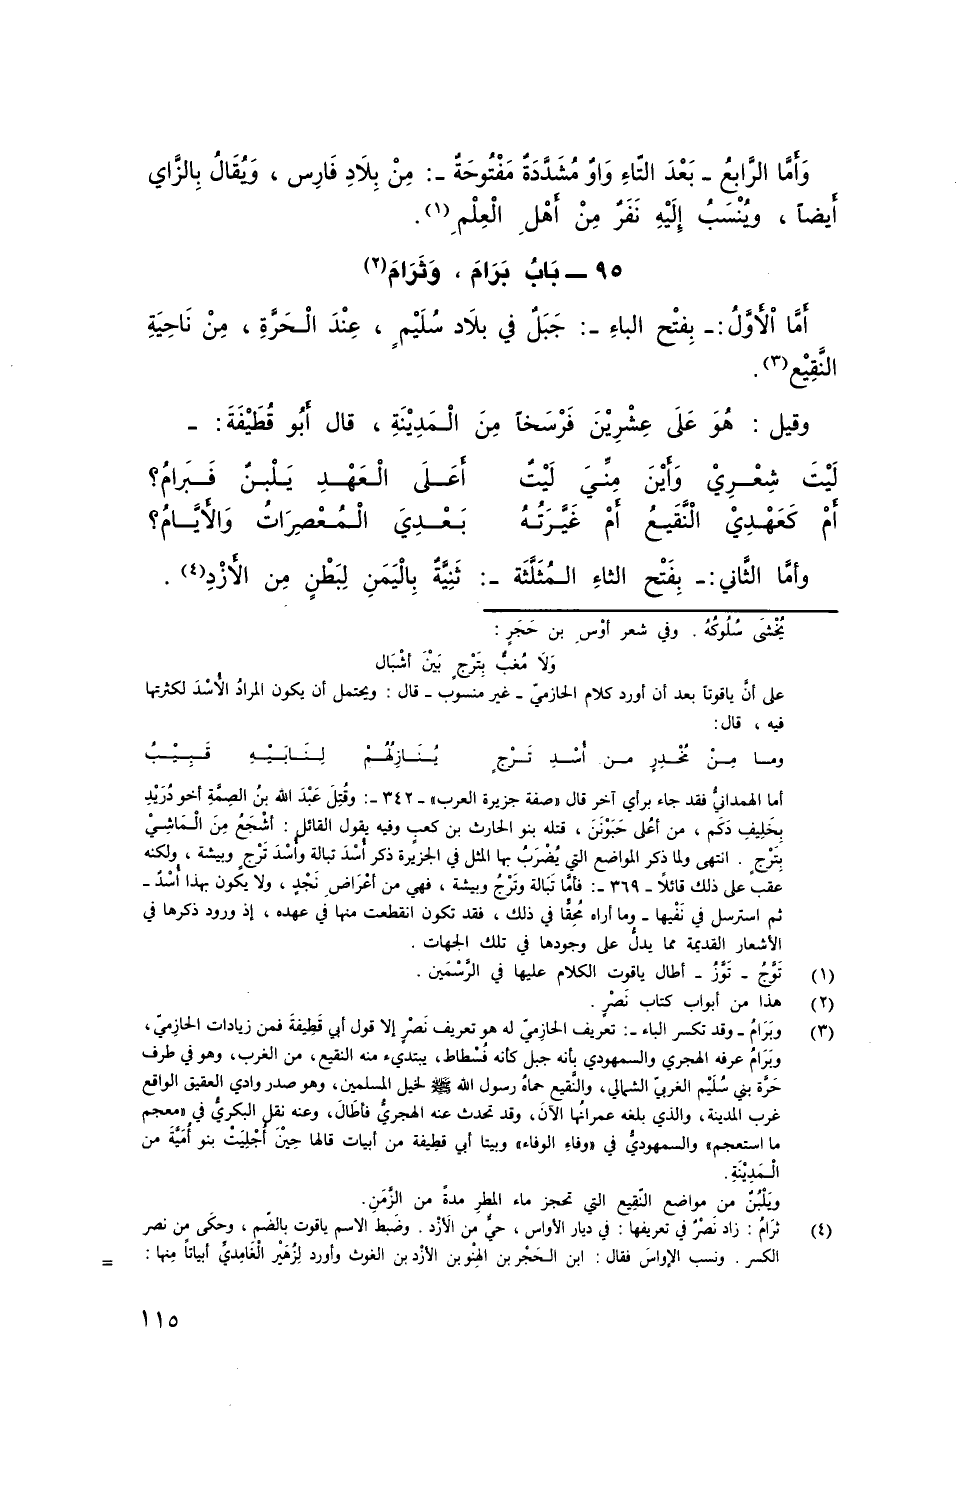 وَأَمَّا الرَّابعُ ـ بَعْدَ التّاءِ وَاوٌ مُشَدَّدَةٌ مَفْتُوحَةٌ ـ: مِنْ بِلَادِ فَارِس ، وَيُقَالُ بِالزَّاي
أَيضاً ، ويُنْسَبُ إِلَيْهِ نَفَرٌ مِنْ أَهْلِ الْعِلْمِ(١).
٩٥ ــ بَابُ بَرَامَ ، وَثَرَامَ(٢)
أَمَّا الْأَوَّلُ :ـ بِفتْحِ الباءِ ـ: جَبَلٌ في بلَاد سُلَيْمٍ ، عِنْدَ الْحَرَّةِ ، مِنْ نَاحِيَةِ
النَّقِيْعِ(٣).
وقيل : هُوَ عَلَى عِشْرِيْنَ فَرْسَخاً مِنَ الْمَدِيْنَةِ ، قال أَبُو قُطَيْفَةَ: ـ
لَيْتَ شِعْرِيْ وَأَيْنَ مِنِّيَ لَيْتٌ أَعَلَى الْعَهْدِ يَلْبنٌ فَبَرامُ؟
أَمْ كَعَهْدِيْ الْنَّقَيعُ أَمْ غَيَّرَتْهُ بَعْدِيَ الْمُعْصِرَاتُ وَالأَيَّامُ؟
وأمَّا الثَّاني :ـ بِفَتْحِ الثاءِ الْمُثَلَّثَة ـ: ثَنِيَّةٌ بِالْيَمَنِ لِبَطْنٍ مِن الأَزْدِ(٤) .
يُخْشَى سُلُوكُهُ . وفي شعر أوْسِ بن حَجَرٍ :
وَلَا مُغبٌ بِتَرْجٍ بَيْنَ أشْبَال
على أنَّ ياقوتاً بعد أن أورد كلام الحازميّ ـ غير منسوب ـ قال : ويحتمل أن يكون المرادُ الأُسْدَ لكثرتها
فيه ، قال:
وما مِنْ مُخْدِرٍ من أُسْدِ تَرْجٍ يُنَازِلُهُمْ لِنَابَيْهِ قَبِيْبُ
أما الهمدانيُّ فقد جاء برأي آخر قال «صفة جزيرة العرب» ـ ٣٤٢ ـ: وقُتِلَ عَبْدَ الله بنُ الصِمَّةِ أخو دُرَيْدٍ
بِخَليف دَكَم ، من أعْلى حَبَوْنَنَ ، قتله بنو الحارث بن كعب وفيه يقول القائل : أشْجَعُ مِنَ الْمَاشِيْ
بِتَرْجٍ . انتهى ولما ذكر المواضع التي يُضْرَبُ بها المثل في الجزيرة ذكر أُسْدَ تبالة وأُسْدَ تَرْجٍ وبيشة ، ولكنه
عقب على ذلك قائلاً ـ ٣٦٩ ـ: فأمَّا تَبَالة وتَرْجُ وبيشة ، فهي من أعْرَاضِ نَجْدٍ ، ولا يكون بهذا أُسْدٌ ـ
ثم استرسل في نَفْيها ـ وما أراه مُحقًّا في ذلك ، فقد تكون انقطعت منها في عهده ، إذ ورود ذكرها في
الأشعار القديمة مما يدلُّ على وجودها في تلك الجهات .
(١) تَوَّجُ ـ تَوَّزُ ـ أطال ياقوت الكلام عليها في الرَّسْمَين .
(٢) هذا من أبواب كتاب نَصْرٍ .
(٣) وبَرَامُ ـ وقد تكسر الباء ـ: تعريف الحازميّ له هو تعريف نَصْرٍ إلا قول أبي قَطِيفةَ فمن زيادات الحازميّ،
وبَرَامُ عرفه الهجري والسمهودي بأنه جبل كأنه فسْطاط، يبتدىء منه النقيع، من الغرب، وهو في طرف
حَرَّة بني سُلَيْم الغربيّ الشمالي، والنَّقيع حماهُ رسول الله ﷺ لخيل المسلمين، وهو صدر وادي العقيق الواقع
غرب المدينة، والذي بلغه عمرانُها الآنَ، وقد تحدث عنه الهجريُّ فأطَالَ، وعنه نقل البكريُّ في «معجم
ما استعجم» والسمهوديُّ في «وفاء الوفاء» وبيتا أبي قطيفة من أبيات قالها حِيْنَ أُجْلِيَتْ بنو أُمَيَّةَ من
الْمَدِيْنَةِ.
ويَلْبُنٌ من مواضع النَّقِيع التي تحجز ماء المطرِ مدةً من الزَّمَنِ.
(٤) ثَرَامُ : زاد نَصْرٌ في تعريفها : في ديار الأواس ، حيٌّ من الأَزْد . وضَبط الاسم ياقوت بالضَّم ، وحكَى من نصر
الكسر . ونسب الإواسَ فقال : ابن الْحَجْر بن الهِنْوِ بن الأزْد بن الغوث وأورد لِزُهَيْرٍ الْغَامِديِّ أبياتاً مِنها :
=
١١٥